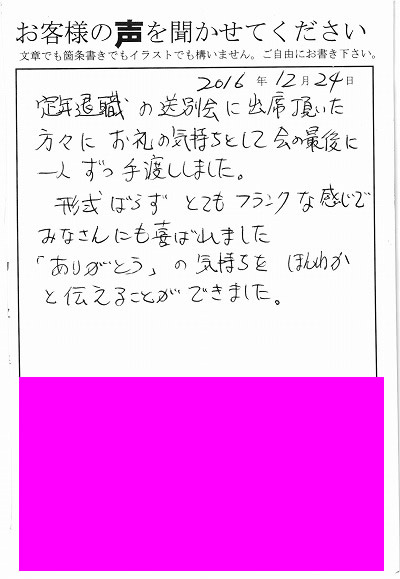 お客様の声を聞かせてください
文章でも箇条書きでもイラストでも構いません。ご自由にお書き下さい。
2016 年 12 月 24 日
定年退職の送別会に出席頂いた
方々に お礼の気持ちとして会の最後に
一人ずつ手渡ししました。
形式ばらず とてもフランクな感じで
みなさんにも喜ばれました
「ありがとう」の気持ちを ほんわか
と伝えることができました。